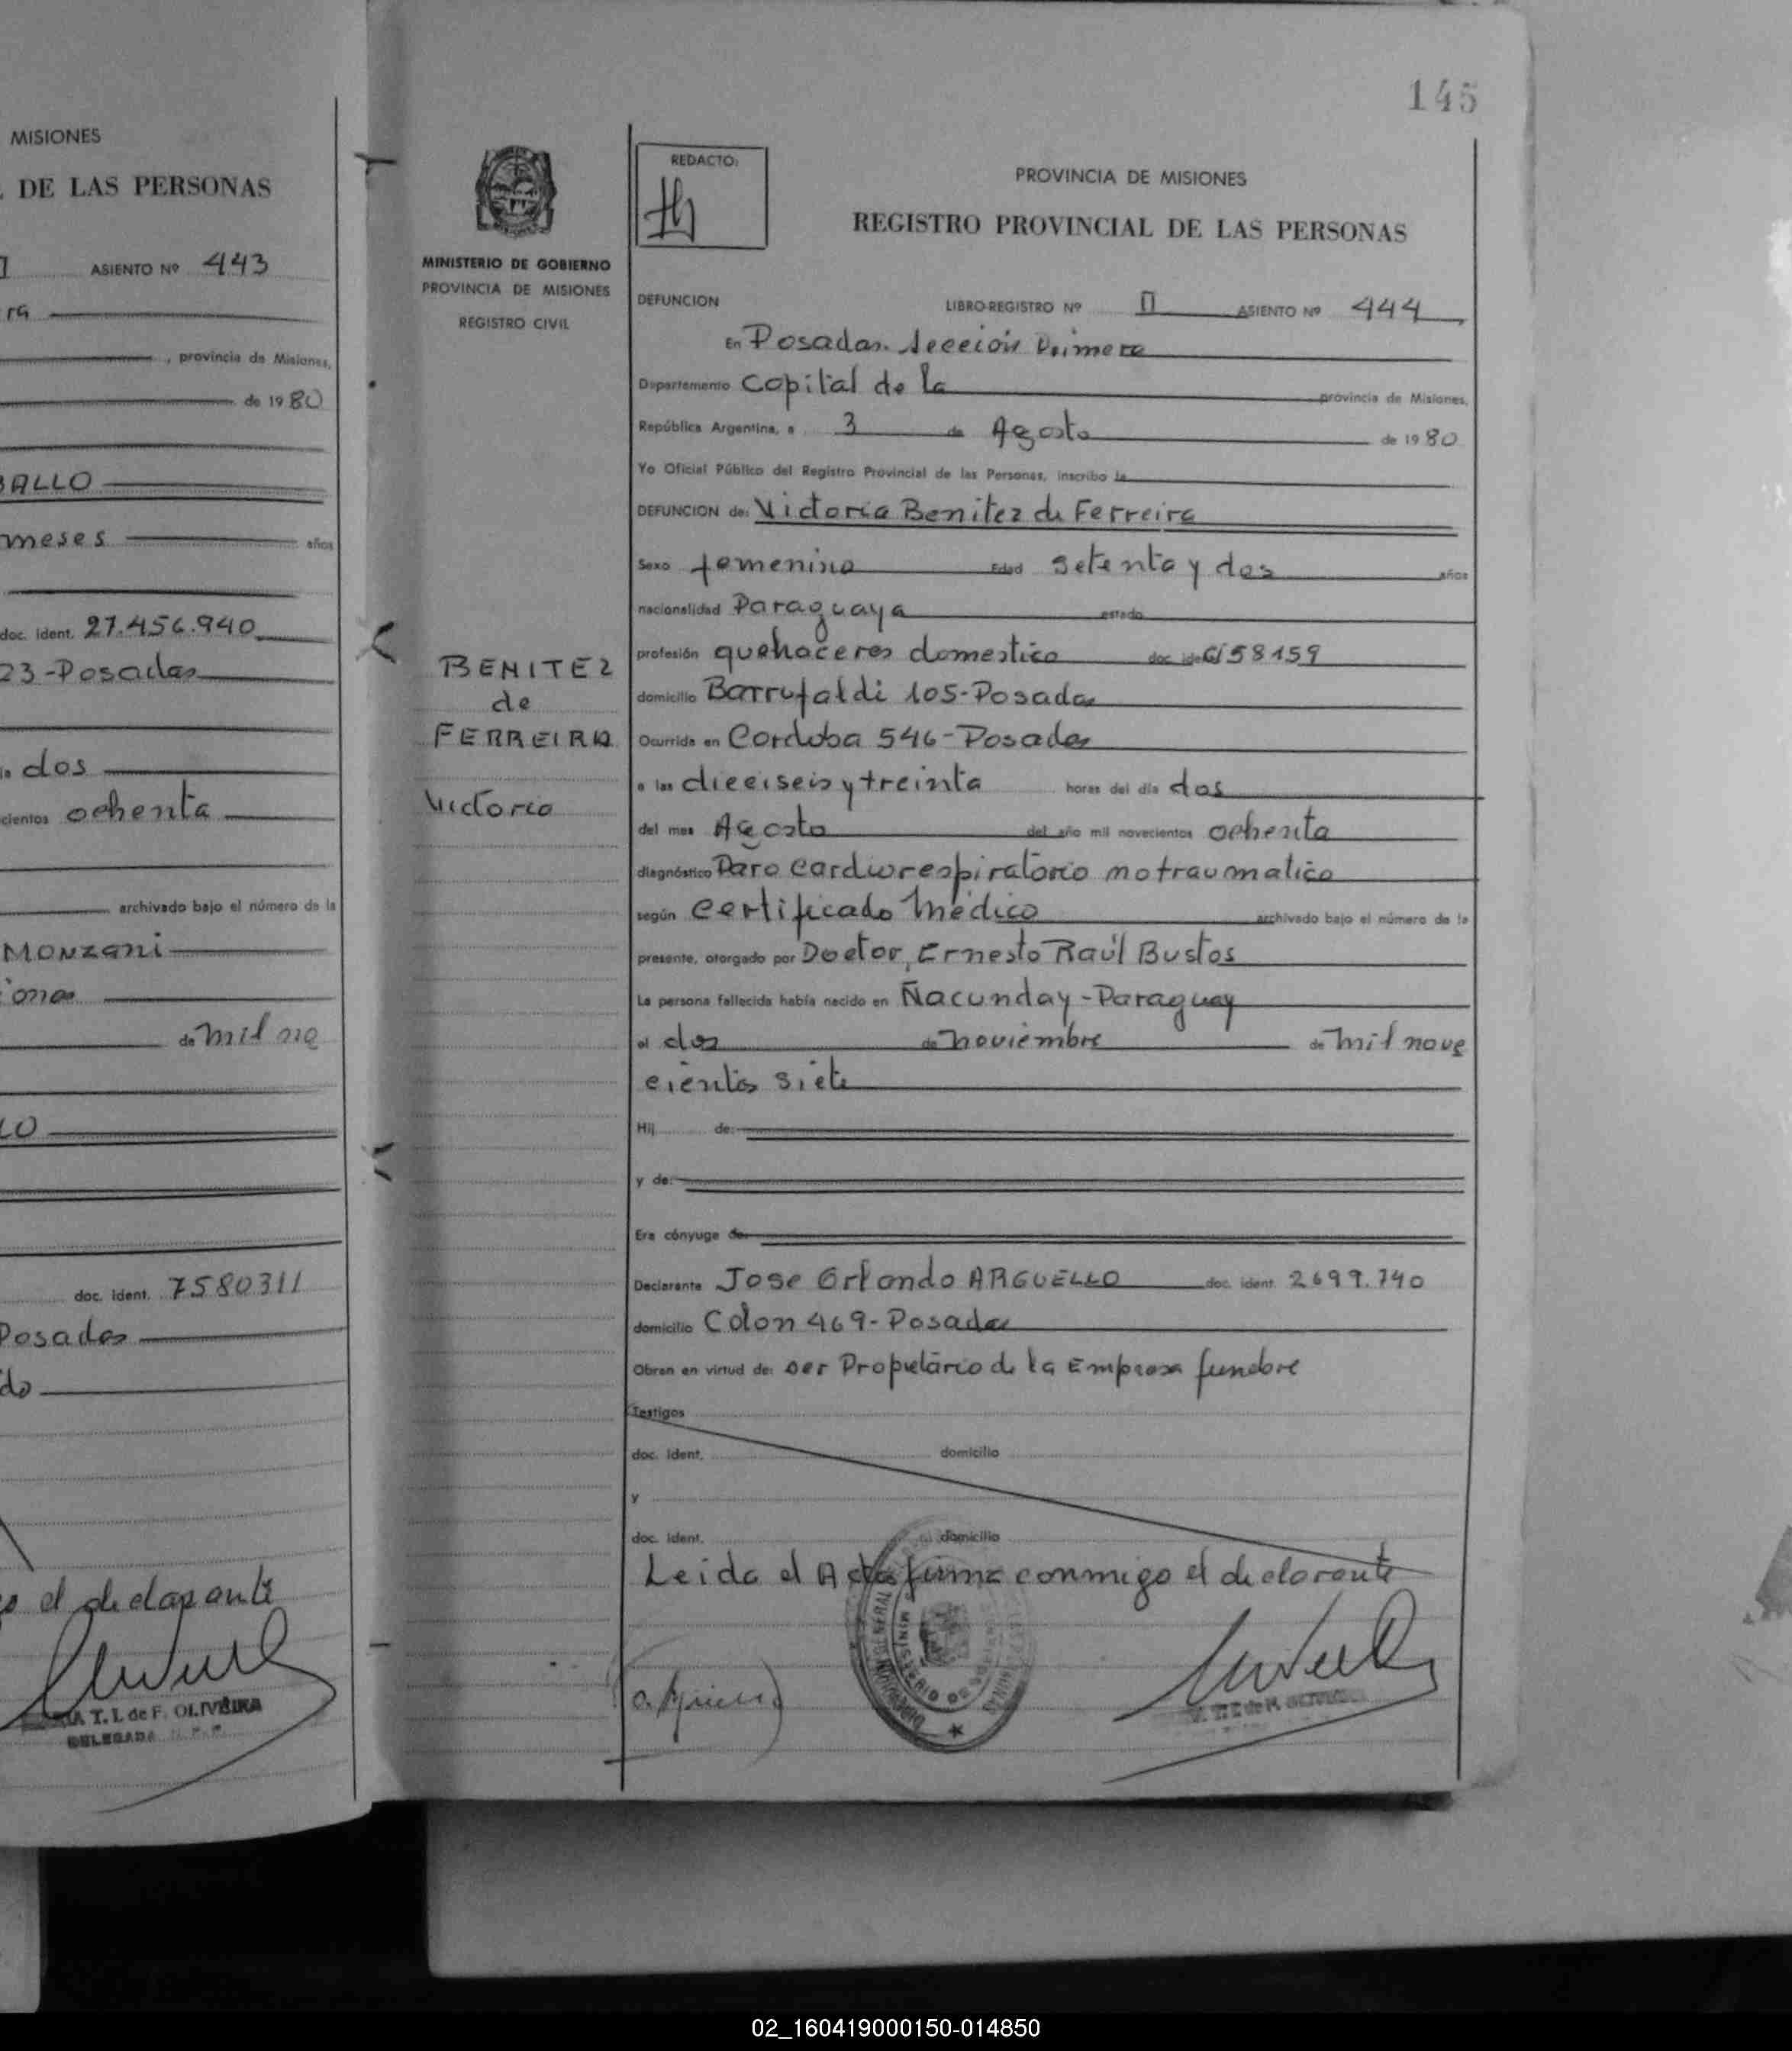 MISIONES
DE LAS PERSONAS
ASIENTO Nº 443
ra
, provincia de Misiones,
de 1980
BALLO
meses años
doc. ident. 27.456.940
23-Posadas
dos
cientos ochenta
archivado bajo el número de la
MONZANI
iones
de mil no
LO
doc. ident. 7580311
Posadas
do
o el declarante
A T. I. de F. OLIVEIRA
DELEGADA
145
MINISTERIO DE GOBIERNO
PROVINCIA DE MISIONES
REGISTRO CIVIL
BENITEZ
de
FERREIRA
Victoria
REDACTO:
PROVINCIA DE MISIONES
REGISTRO PROVINCIAL DE LAS PERSONAS
DEFUNCION LIBRO-REGISTRO Nº II ASIENTO Nº 444
En Posadas. Sección Primera
Departamento Capital de la provincia de Misiones,
República Argentina, a 3 de Agosto de 1980
Yo Oficial Público del Registro Provincial de las Personas, inscribo la
DEFUNCION de: Victoria Benitez de Ferreira
Sexo femenino Edad setenta y dos años
nacionalidad Paraguaya estado
profesión quehaceres domestico doc. ide Ci 58159
domicilio Barrufaldi 105-Posadas
Ocurrida en Cordoba 546-Posadas
a las dieciseis y treinta horas del día dos
del mes Agosto del año mil novecientos ochenta
diagnóstico Paro Cardiorespiratorio no traumatico
según Certificado Médico archivado bajo el número de la
presente, otorgado por Doctor, Ernesto Raúl Bustos
La persona fallecida había nacido en Ñacunday-Paraguay
el dos de noviembre de mil nove
cientos siete
Hij de:
y de:
Era cónyuge de:
Declarante Jose Orlando ARGUELLO doc. ident. 2699.740
domicilio Colon 469-Posadas
Obran en virtud de: ser Propietario de la Empresa funebre
Testigos
doc. ident. domicilio
y
doc. ident. domicilio
Leida el Acta firma conmigo el declarante
02_160419000150-014850